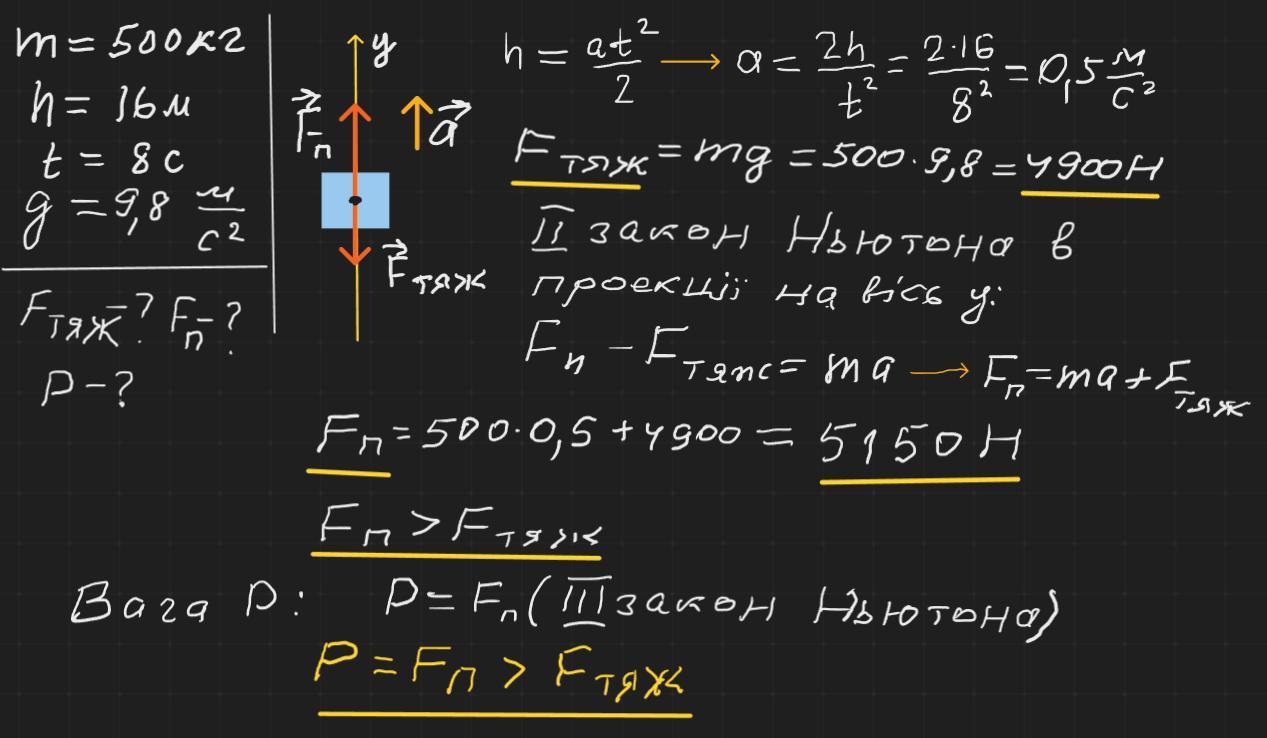 m = 500кг
h = 16м
t = 8 с
g = 9,8 м/с²
Fтяж - ? Fп - ?
P - ?
y
F⃗п
a⃗
F⃗тяж
h = at²/2 → a = 2h/t² = 2·16/8² = 0,5 м/с²
Fтяж = mg = 500·9,8 = 4900Н
II закон Ньютона в
проекції на вісь y:
Fп - Fтяж = ma → Fп = ma + Fтяж
Fп = 500·0,5 + 4900 = 5150 Н
Fп > Fтяж
Вага P: P = Fп (III закон Ньютона)
P = Fп > Fтяж